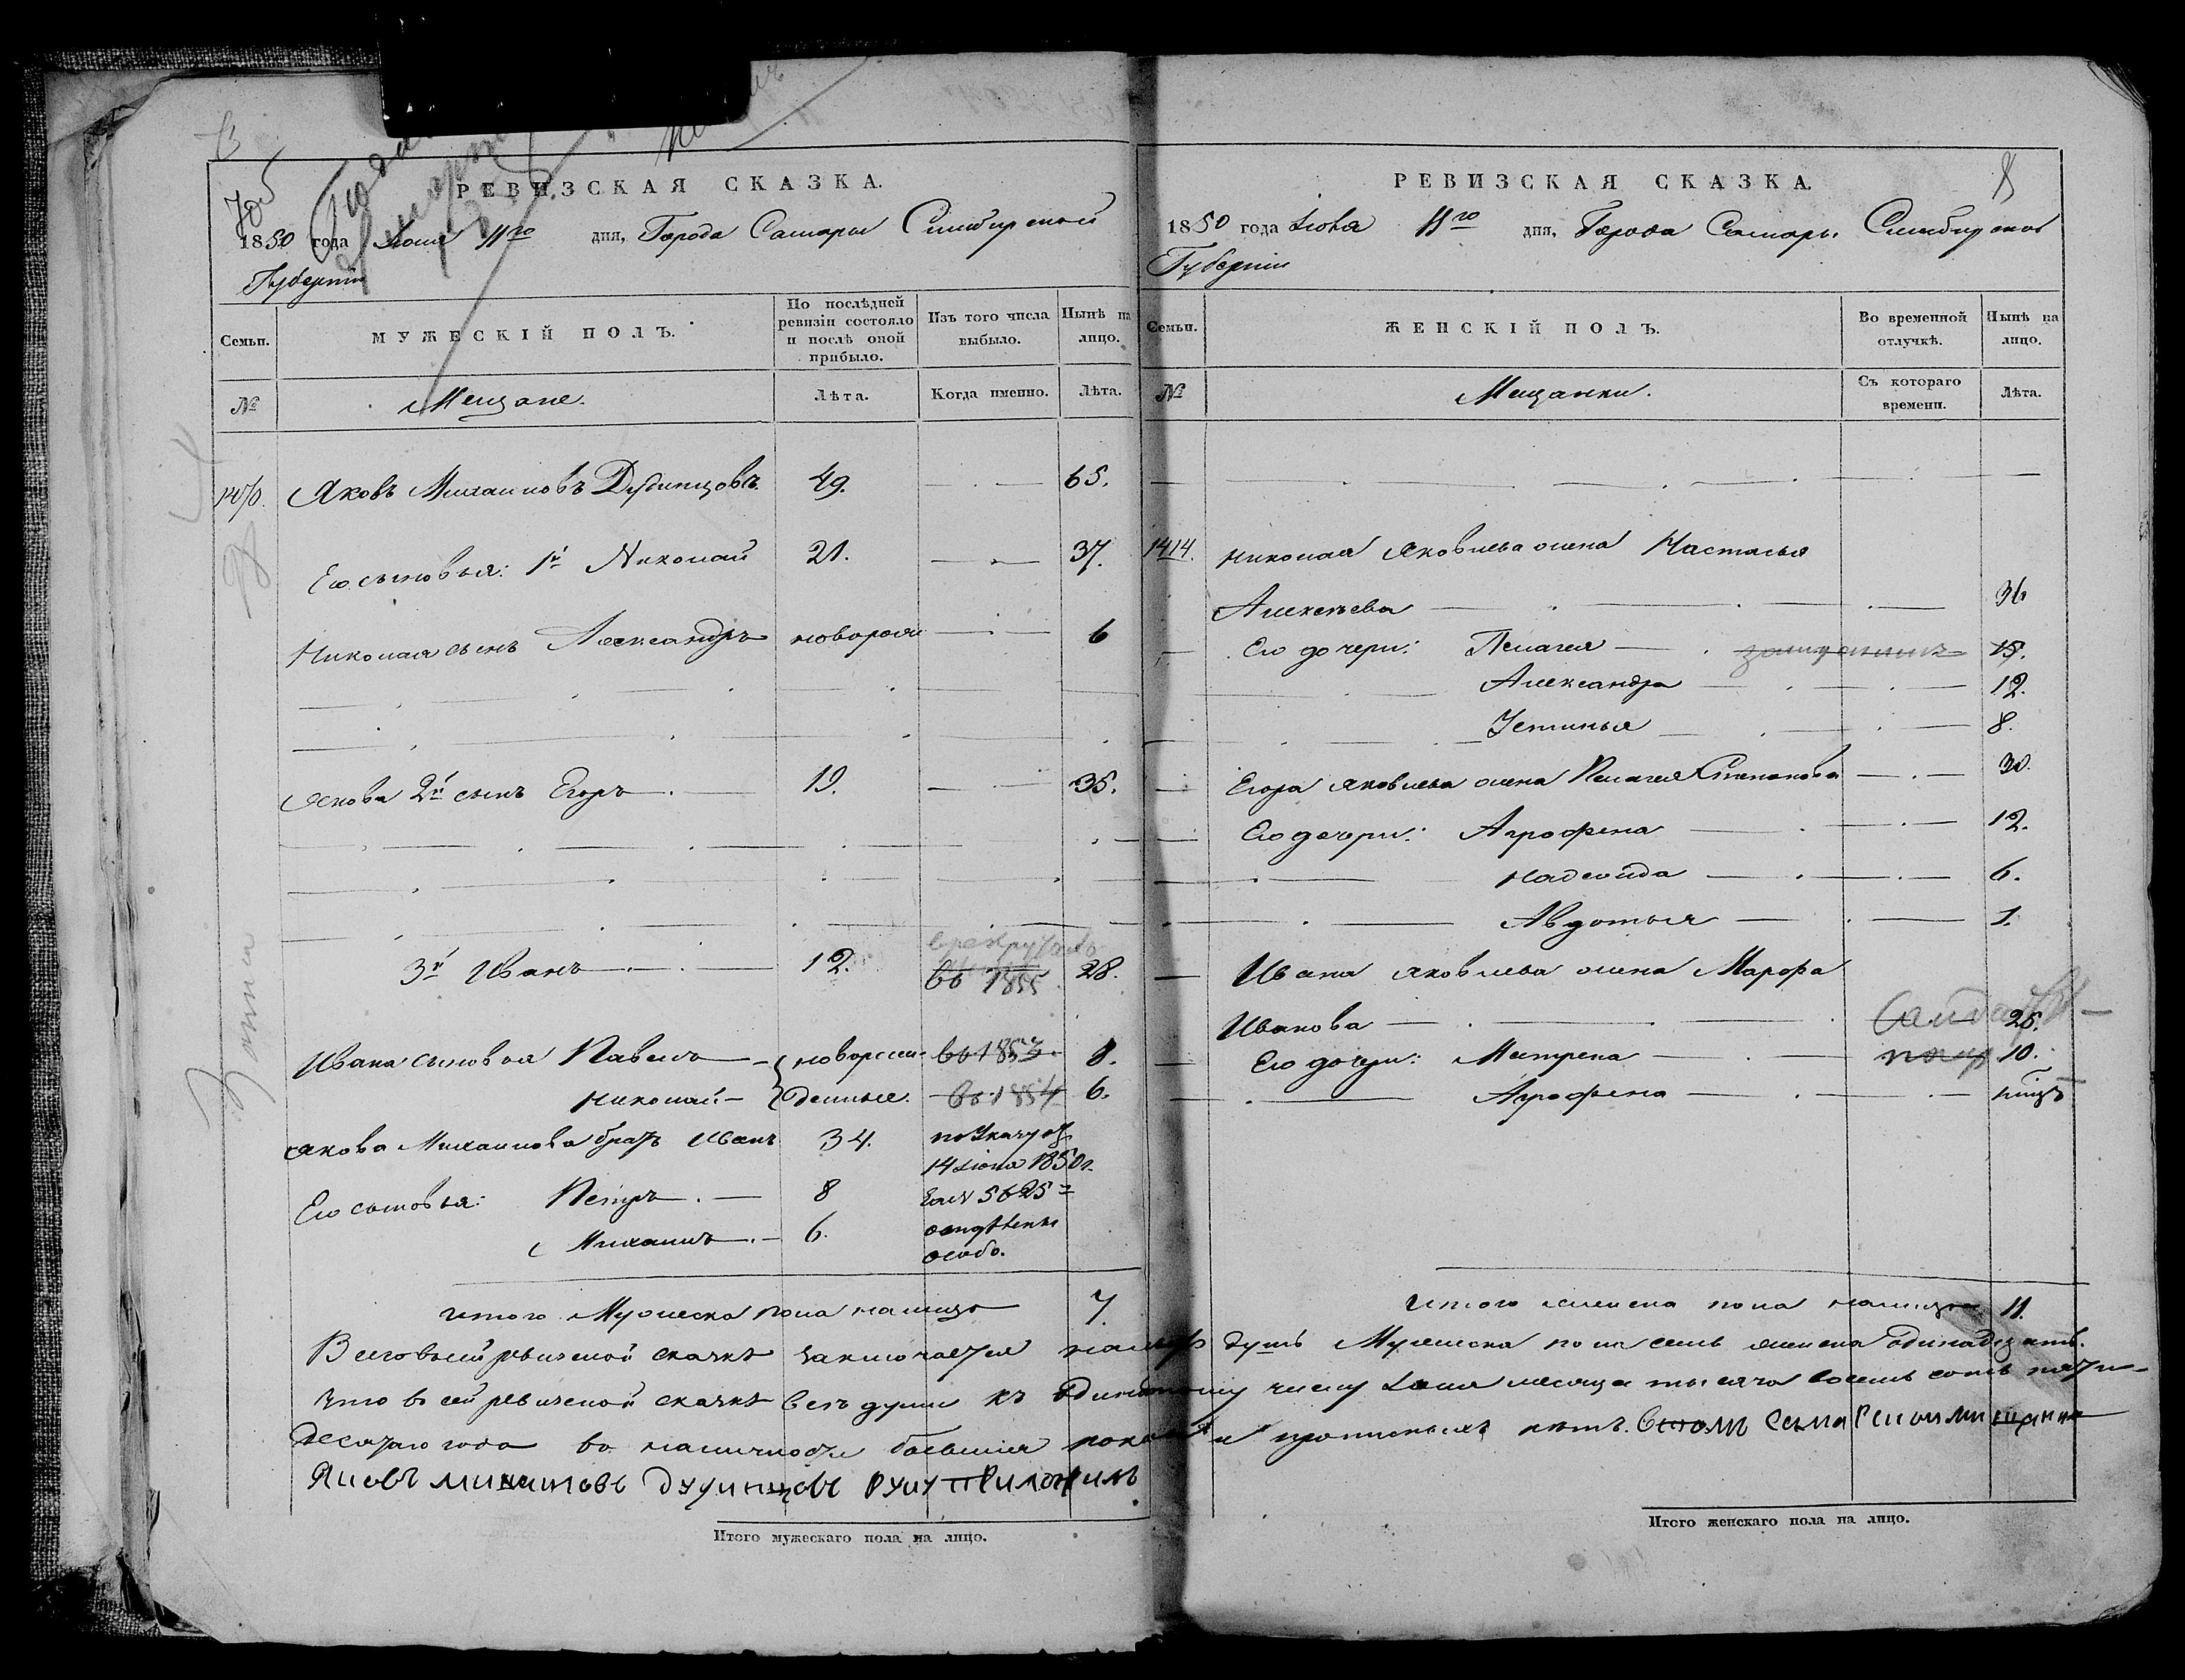 РЕВИЗСКАЯ СКАЗКА.
1850 года Июня 11го дня, Города Самары Симбирской
Губернии
Семьи.
МУЖЕСКІЙ ПОЛЪ.
По послѣдней ревизіи состояло и послѣ оной прибыло.
Изъ того числа выбыло.
Нынѣ на лицо.
№
Мещане.
Лѣта.
Когда именно.
Лѣта.
Яковъ Михаиловъ 49. 65.
Его сыновья: 1й Николай 21. 37.
Николая сынъ Александръ новорож 6
Якова 2й сынъ Егоръ 19. 35.
3й Иванъ 12. въ 1855 28.
Ивана сыновья Павелъ новорож въ 1853 8.
Николай денные. въ 1854 6.
Якова Михаилова братъ Иванъ 34. по Указу
14 Июня 1850 г.
Его сыновья: Петръ 8 5625
Михаилъ 6.
особо.
итого Мужеска пола налицо 7.
РЕВИЗСКАЯ СКАЗКА.
8
1850 года Июня 11го дня, Города Самары Симбирской
Губернии
Семьи.
ЖЕНСКІЙ ПОЛЪ.
Во временной отлучкѣ.
Нынѣ на лицо.
№
Мещанки.
Съ котораго времени.
Лѣта.
1414. Николая Яковлева жена Настасья
Алексѣева 36
Его дочери: Пелагея 15.
Александра 12.
Устинья 8.
Егора Яковлева жена Пелагея Степанова 30.
Его дочери: Агрофена 12.
Надежда 6.
Авдотья 1.
Ивана Яковлева жена Марфа
Иванова 25.
Его дочери: Матрена 10.
Агрофена
итого женска пола налицо 11.
Всего въ сей ревизской сказкѣ заключается налицо душъ Мужеска пола семь женска одинадцать.
Что въ сей ревизской сказкѣ всѣ души къ одинатому числу Июня месяца тысяча восемь сотъ пяти-
десятаго года въ наличности бывшія показаны и прописныхъ нѣтъ. Самарской мищанинъ
руку приложилъ
Итого мужескаго пола на лицо.
Итого женскаго пола на лицо.